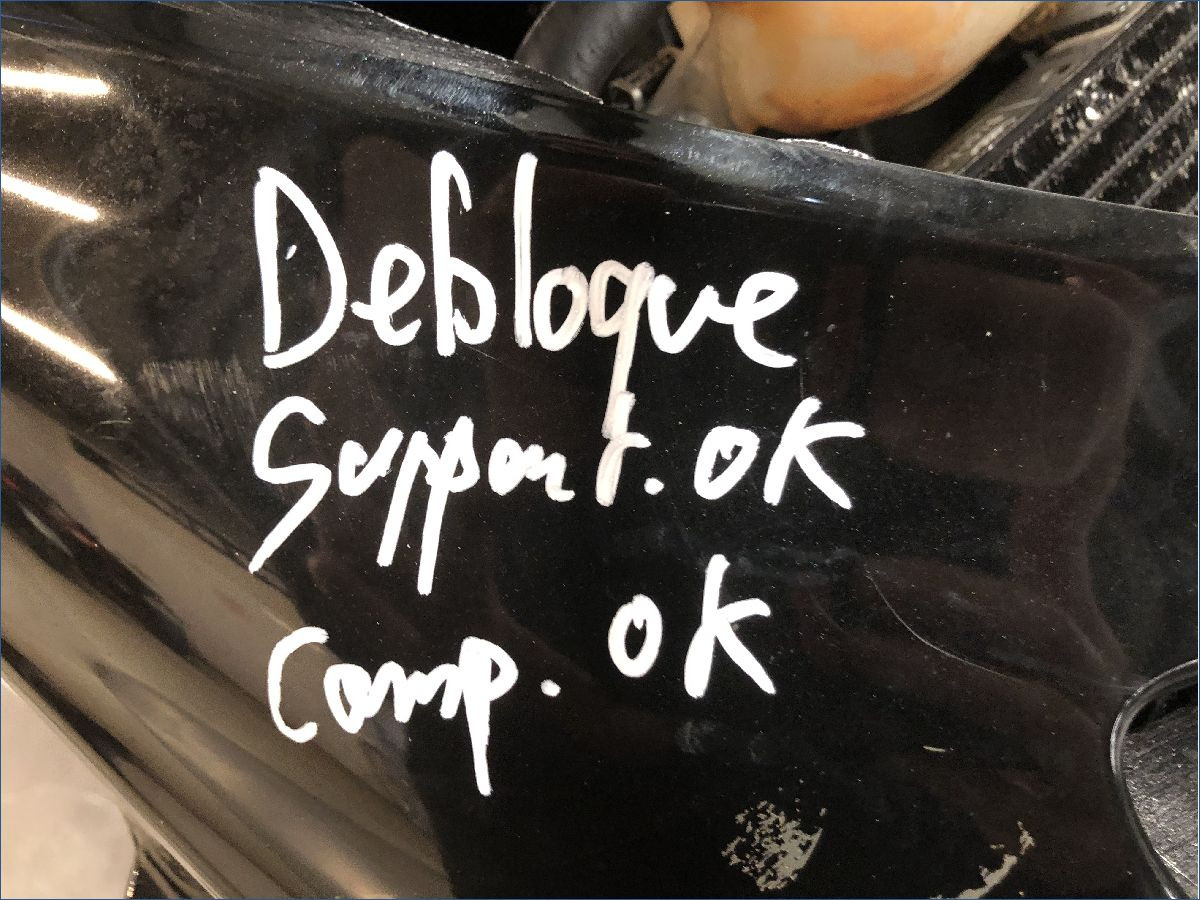 Debloque
Support. OK
Comp. OK